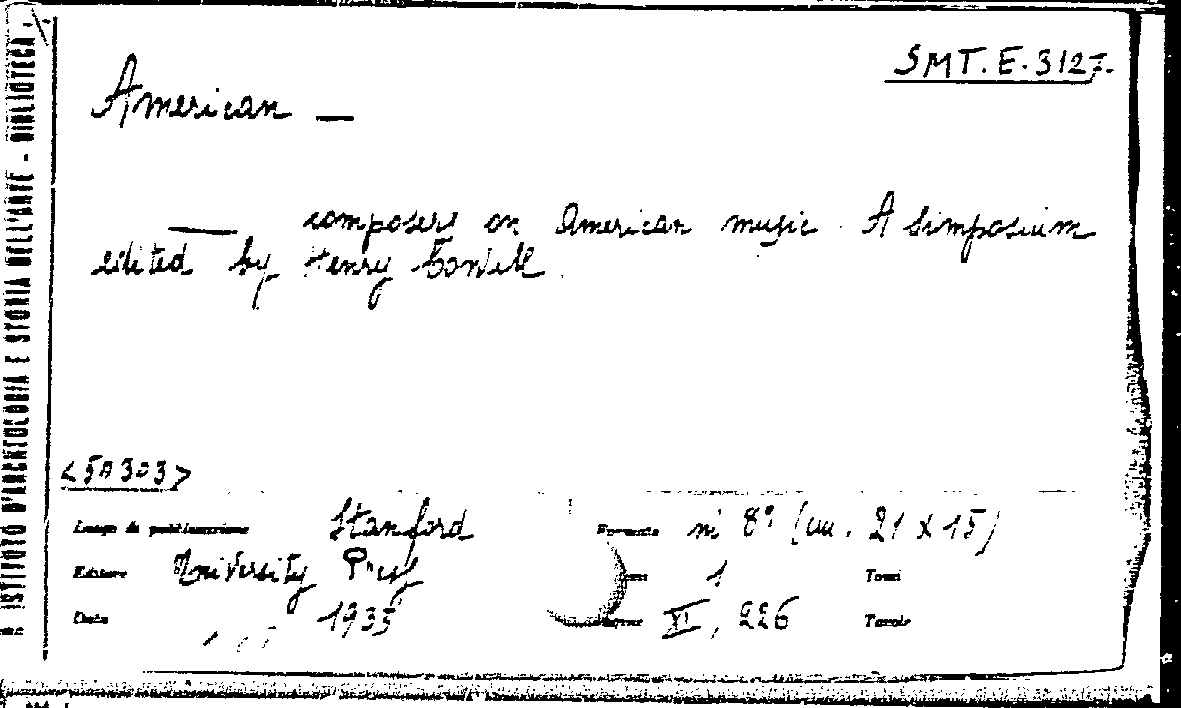 ISTITUTO D'ARCHEOLOGIA E STORIA DELL'ARTE - BIBLIOTECA -
SMT. E. 3127.
American —
— composers on American music. A Simposium
edited by Henry Cowell
<5A303>
Luogo di pubblicazione Stanford
Formato in 8° (cm. 21 x 15)
Editore University Press
1 Tomi
Data 1933
XI, 226 Tavole